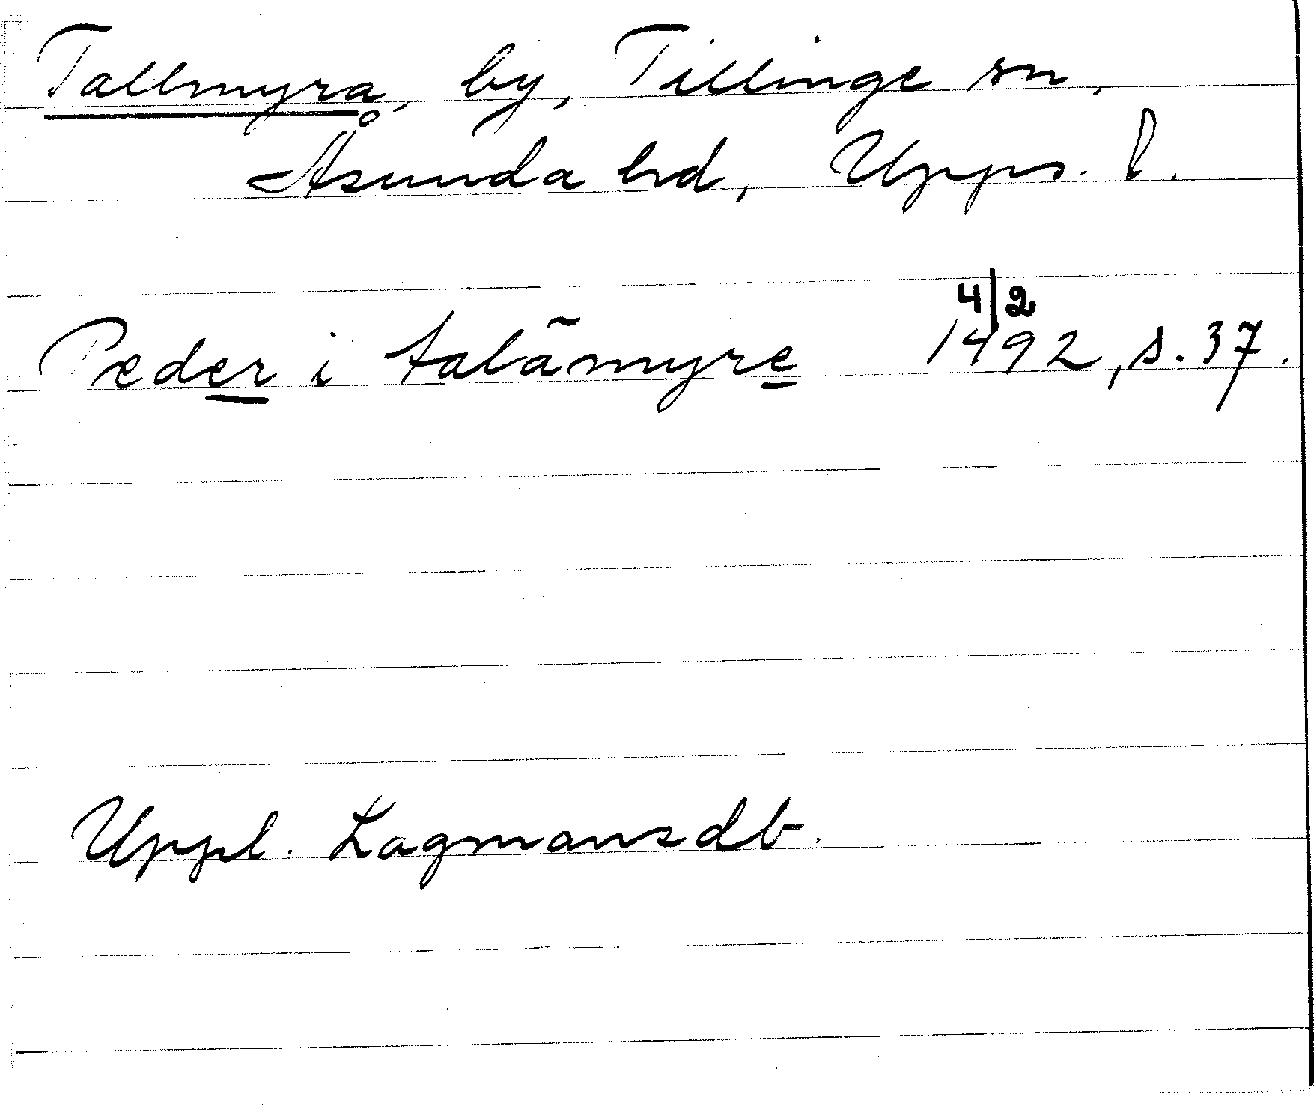 Tallmyra, by, Tillinge sn,
Åsunda hd, Upps. l.
4/2
Peder i talãmyre 1492, s. 37.
Uppl. Lagmansdb.